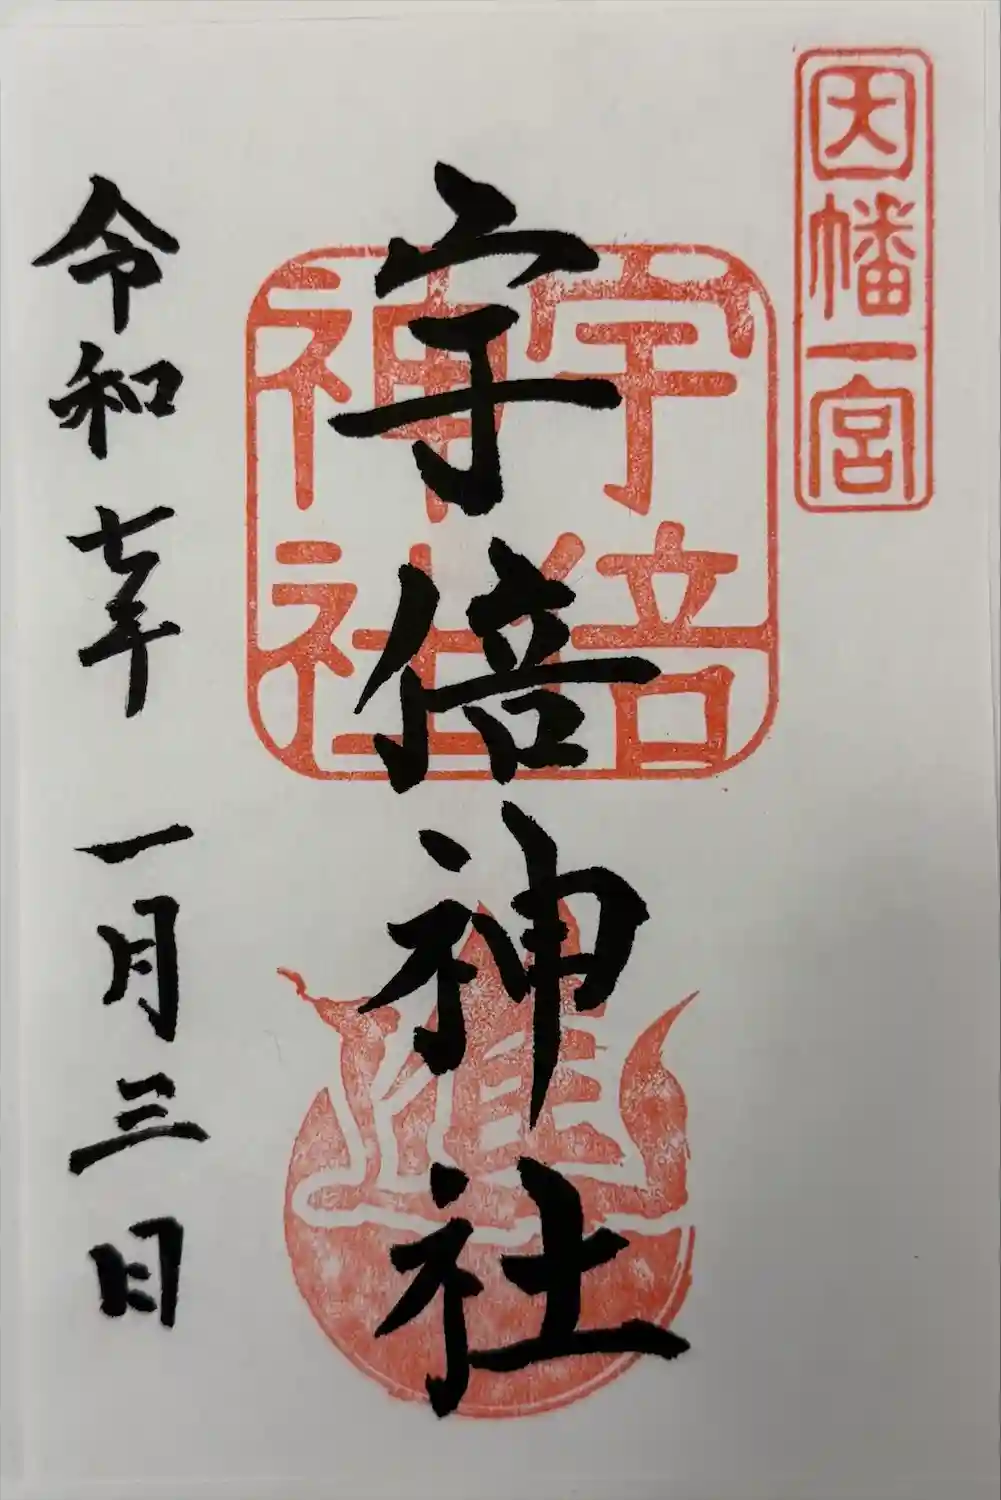 因幡一宮
宇倍神社
宇倍
神社
令和七年 一月三日